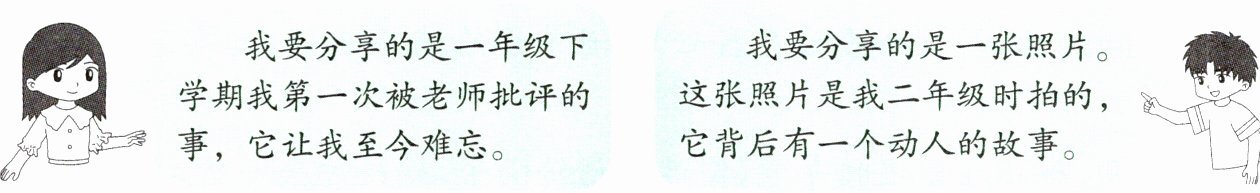 我要分享的是一年级下
学期我第一次被老师批评的
事，它让我至今难忘。
我要分享的是一张照片。
这张照片是我二年级时拍的，
它背后有一个动人的故事。